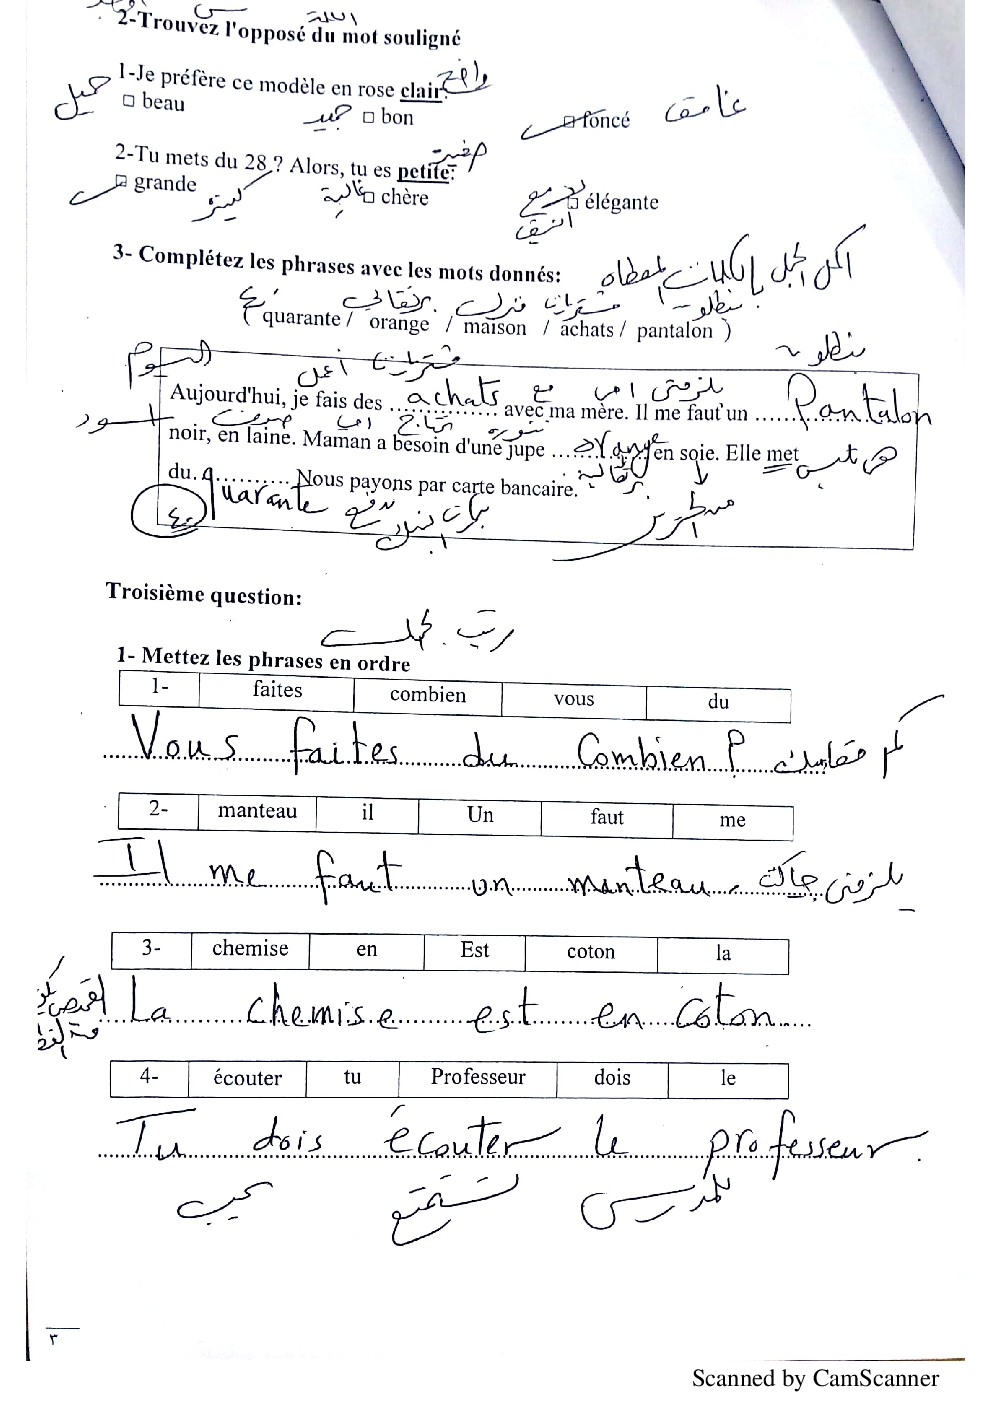 2-Trouvez l'opposé du mot souligné
1-Je préfère ce modèle en rose clair. واضح
جميل □ beau جيد □ bon □ foncé غامق
2-Tu mets du 28 ? Alors, tu es petite:
□ grande □ chère غالية □ élégante
3- Complétez les phrases avec les mots donnés: اكمل الجمل بالكلمات المعطاه
٤٠ برتقالي منزل مشتريات بنطلون
( quarante / orange / maison / achats / pantalon )
بنطلون
اليوم أعمل مشتريات
Aujourd'hui, je fais des achats avec ma mère. Il me faut un Pantalon
noir, en laine. Maman a besoin d'une jupe orange en soie. Elle met
du. quarante Nous payons par carte bancaire.
٤٠
Troisième question:
رتب
1- Mettez les phrases en ordre
1- faites combien vous du
Vous faites du Combien ? كم مقاسك
2- manteau il Un faut me
Il me faut un manteau. يلزمنى جاكت
3- chemise en Est coton la
La chemise est en coton
4- écouter tu Professeur dois le
Tu dois écouter le professeur.
يجب تستمع للمدرس
٣
Scanned by CamScanner